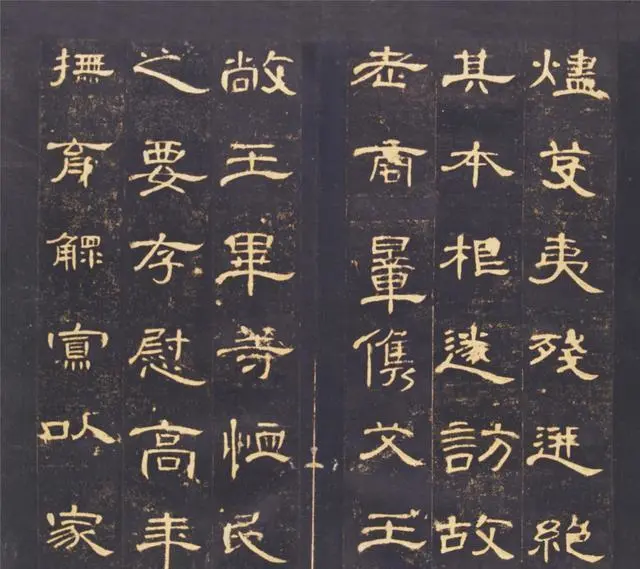 燼芟夷殘迸絕
其本根遂訪故
老商量儁艾王
敞王畢等恤民
之要存慰高年
撫育鰥寡以家